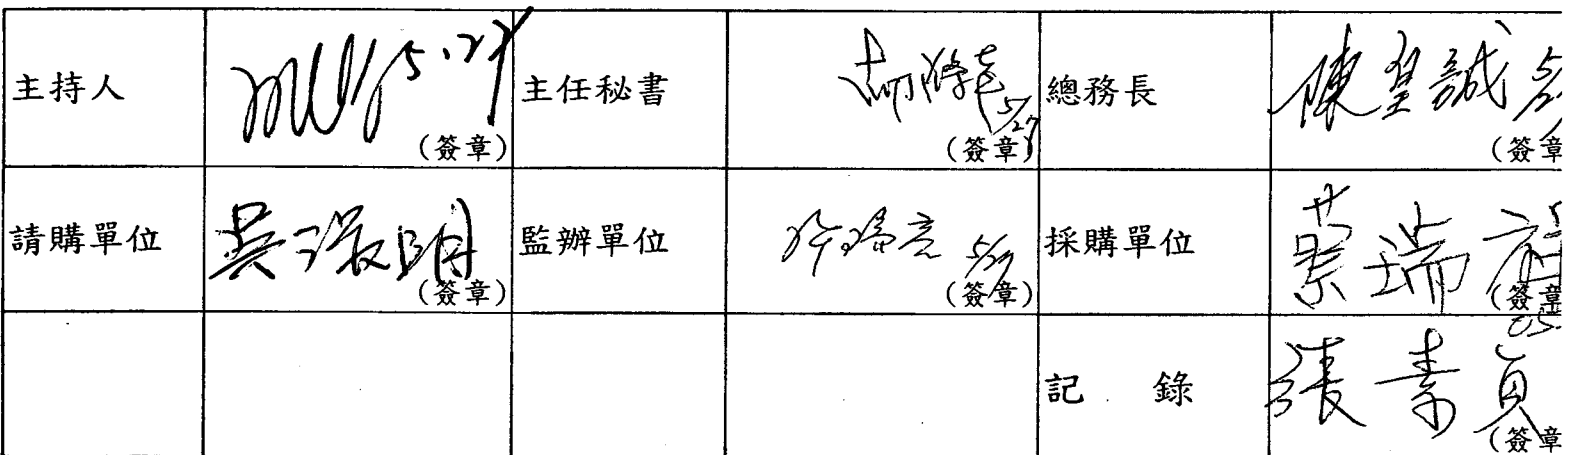 主持人 5.27 (簽章) 主任秘書 5/27 (簽章) 總務長 陳皇誠 5/2 (簽章
請購單位 吳淑明 (簽章) 監辦單位 5/27 (簽章) 採購單位 蔡瑞 (簽章
05.
記 錄 張素貞 (簽章